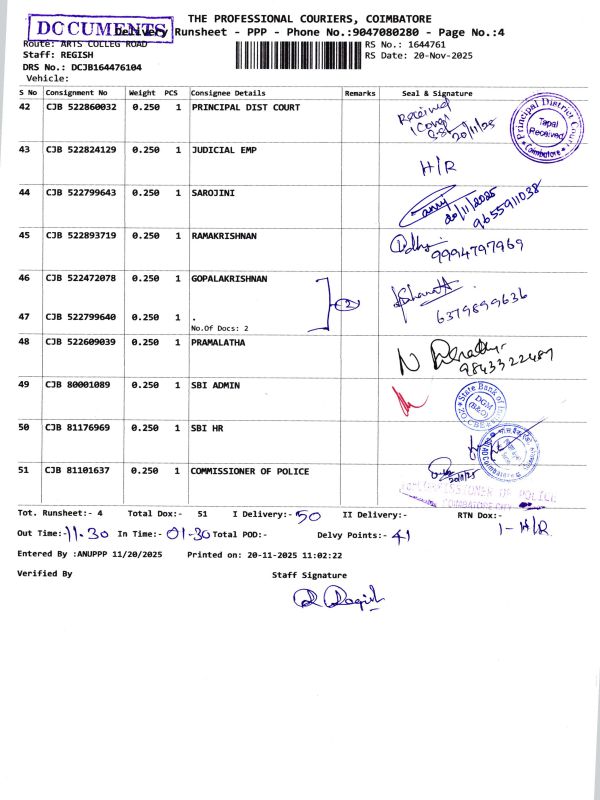 THE PROFESSIONAL COURIERS, COIMBATORE
DOCUMENTS
Delivery Runsheet - PPP - Phone No.:9047080280 - Page No.:4
Route: ARTS COLLEG ROAD RS No.: 1644761
Staff: REGISH RS Date: 20-Nov-2025
DRS No.: DCJB164476104
Vehicle:
S No Consignment No Weight PCS Consignee Details Remarks Seal & Signature
42 CJB 522860032 0.250 1 PRINCIPAL DIST COURT
Received
20/11/25
Principal District Court
Tapal
Received
Coimbatore
43 CJB 522824129 0.250 1 JUDICIAL EMP H/R
44 CJB 522799643 0.250 1 SAROJINI
20/11/2025
9655911038
45 CJB 522893719 0.250 1 RAMAKRISHNAN
9994797969
46 CJB 522472078 0.250 1 GOPALAKRISHNAN
2
6379899636
47 CJB 522799640 0.250 1 .
No.Of Docs: 2
48 CJB 522609039 0.250 1 PRAMALATHA
9843322487
49 CJB 80001089 0.250 1 SBI ADMIN
State Bank of India
DGM
(B&O)
50 CJB 81176969 0.250 1 SBI HR
51 CJB 81101637 0.250 1 COMMISSIONER OF POLICE
20/11/25
COMMISSIONER OF POLICE
COIMBATORE CITY
Tot. Runsheet:- 4 Total Dox:- 51 I Delivery:- 50 II Delivery:- RTN Dox:-
1-H/R
Out Time:- 11.30 In Time:- 01-30 Total POD:- Delvy Points:- 41
Entered By :ANUPPP 11/20/2025 Printed on: 20-11-2025 11:02:22
Verified By Staff Signature